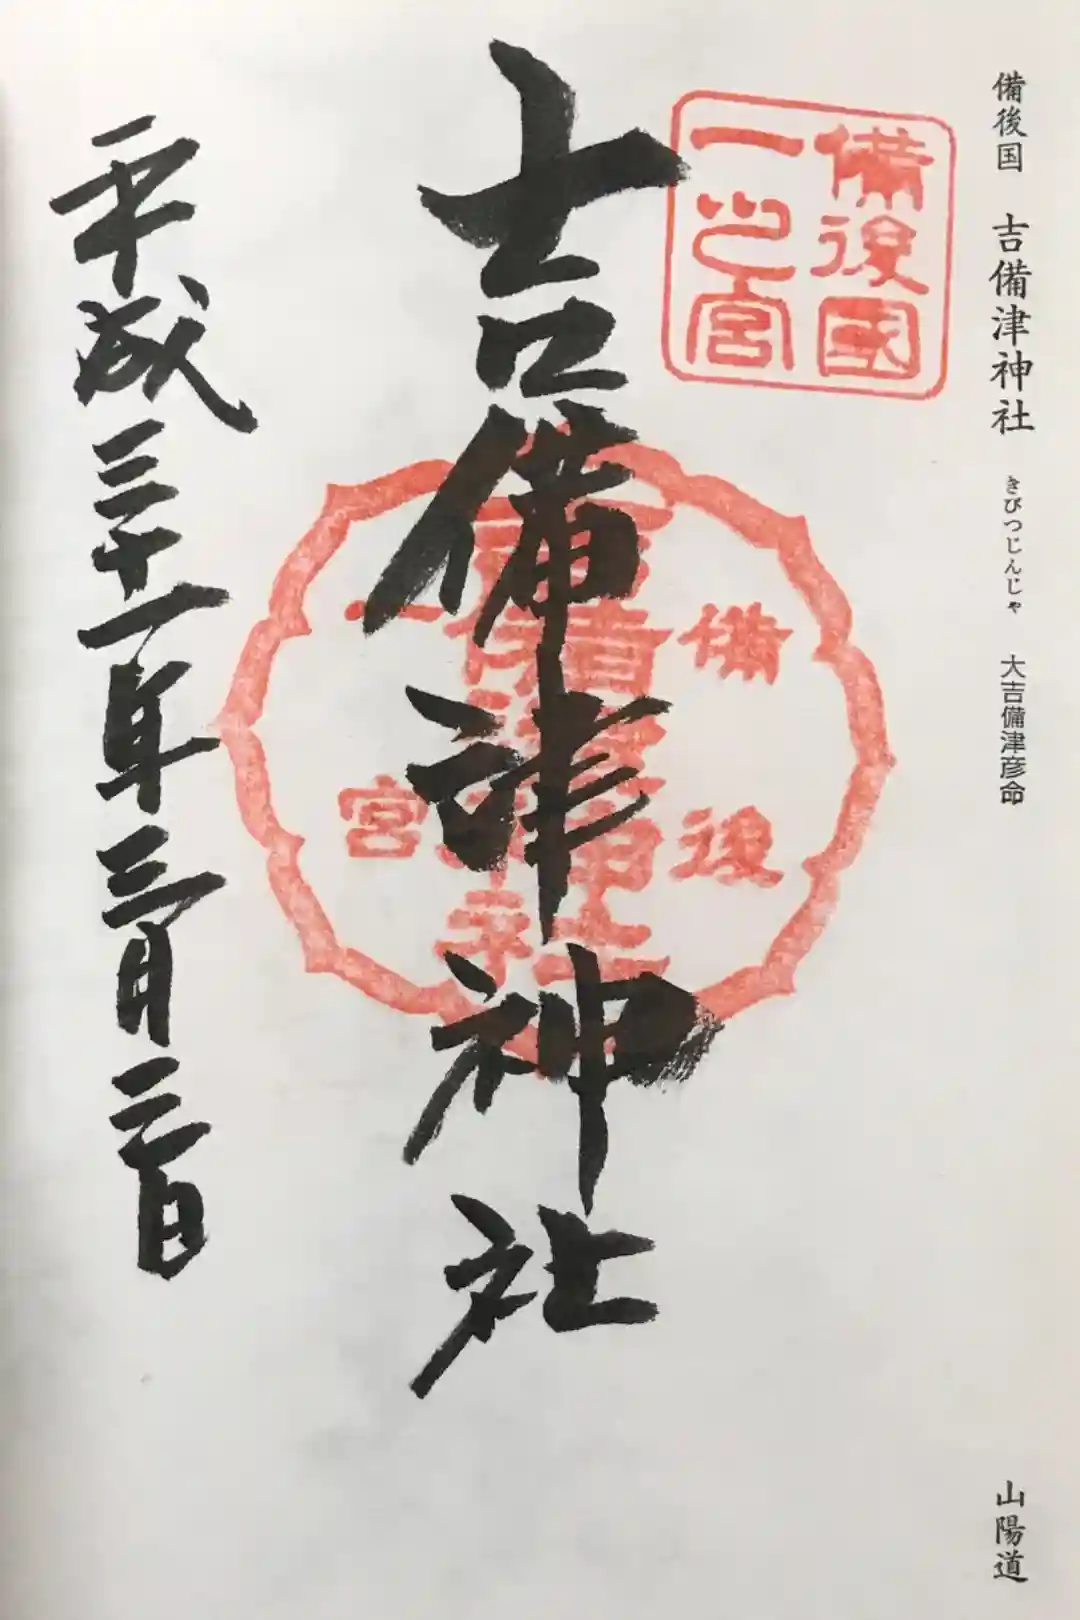 備後国 吉備津神社 きびつじんじゃ 大吉備津彦命
山陽道
備後國
一之宮
吉備津神社
備後
吉備津神社
一宮
平成三十一年三月二日